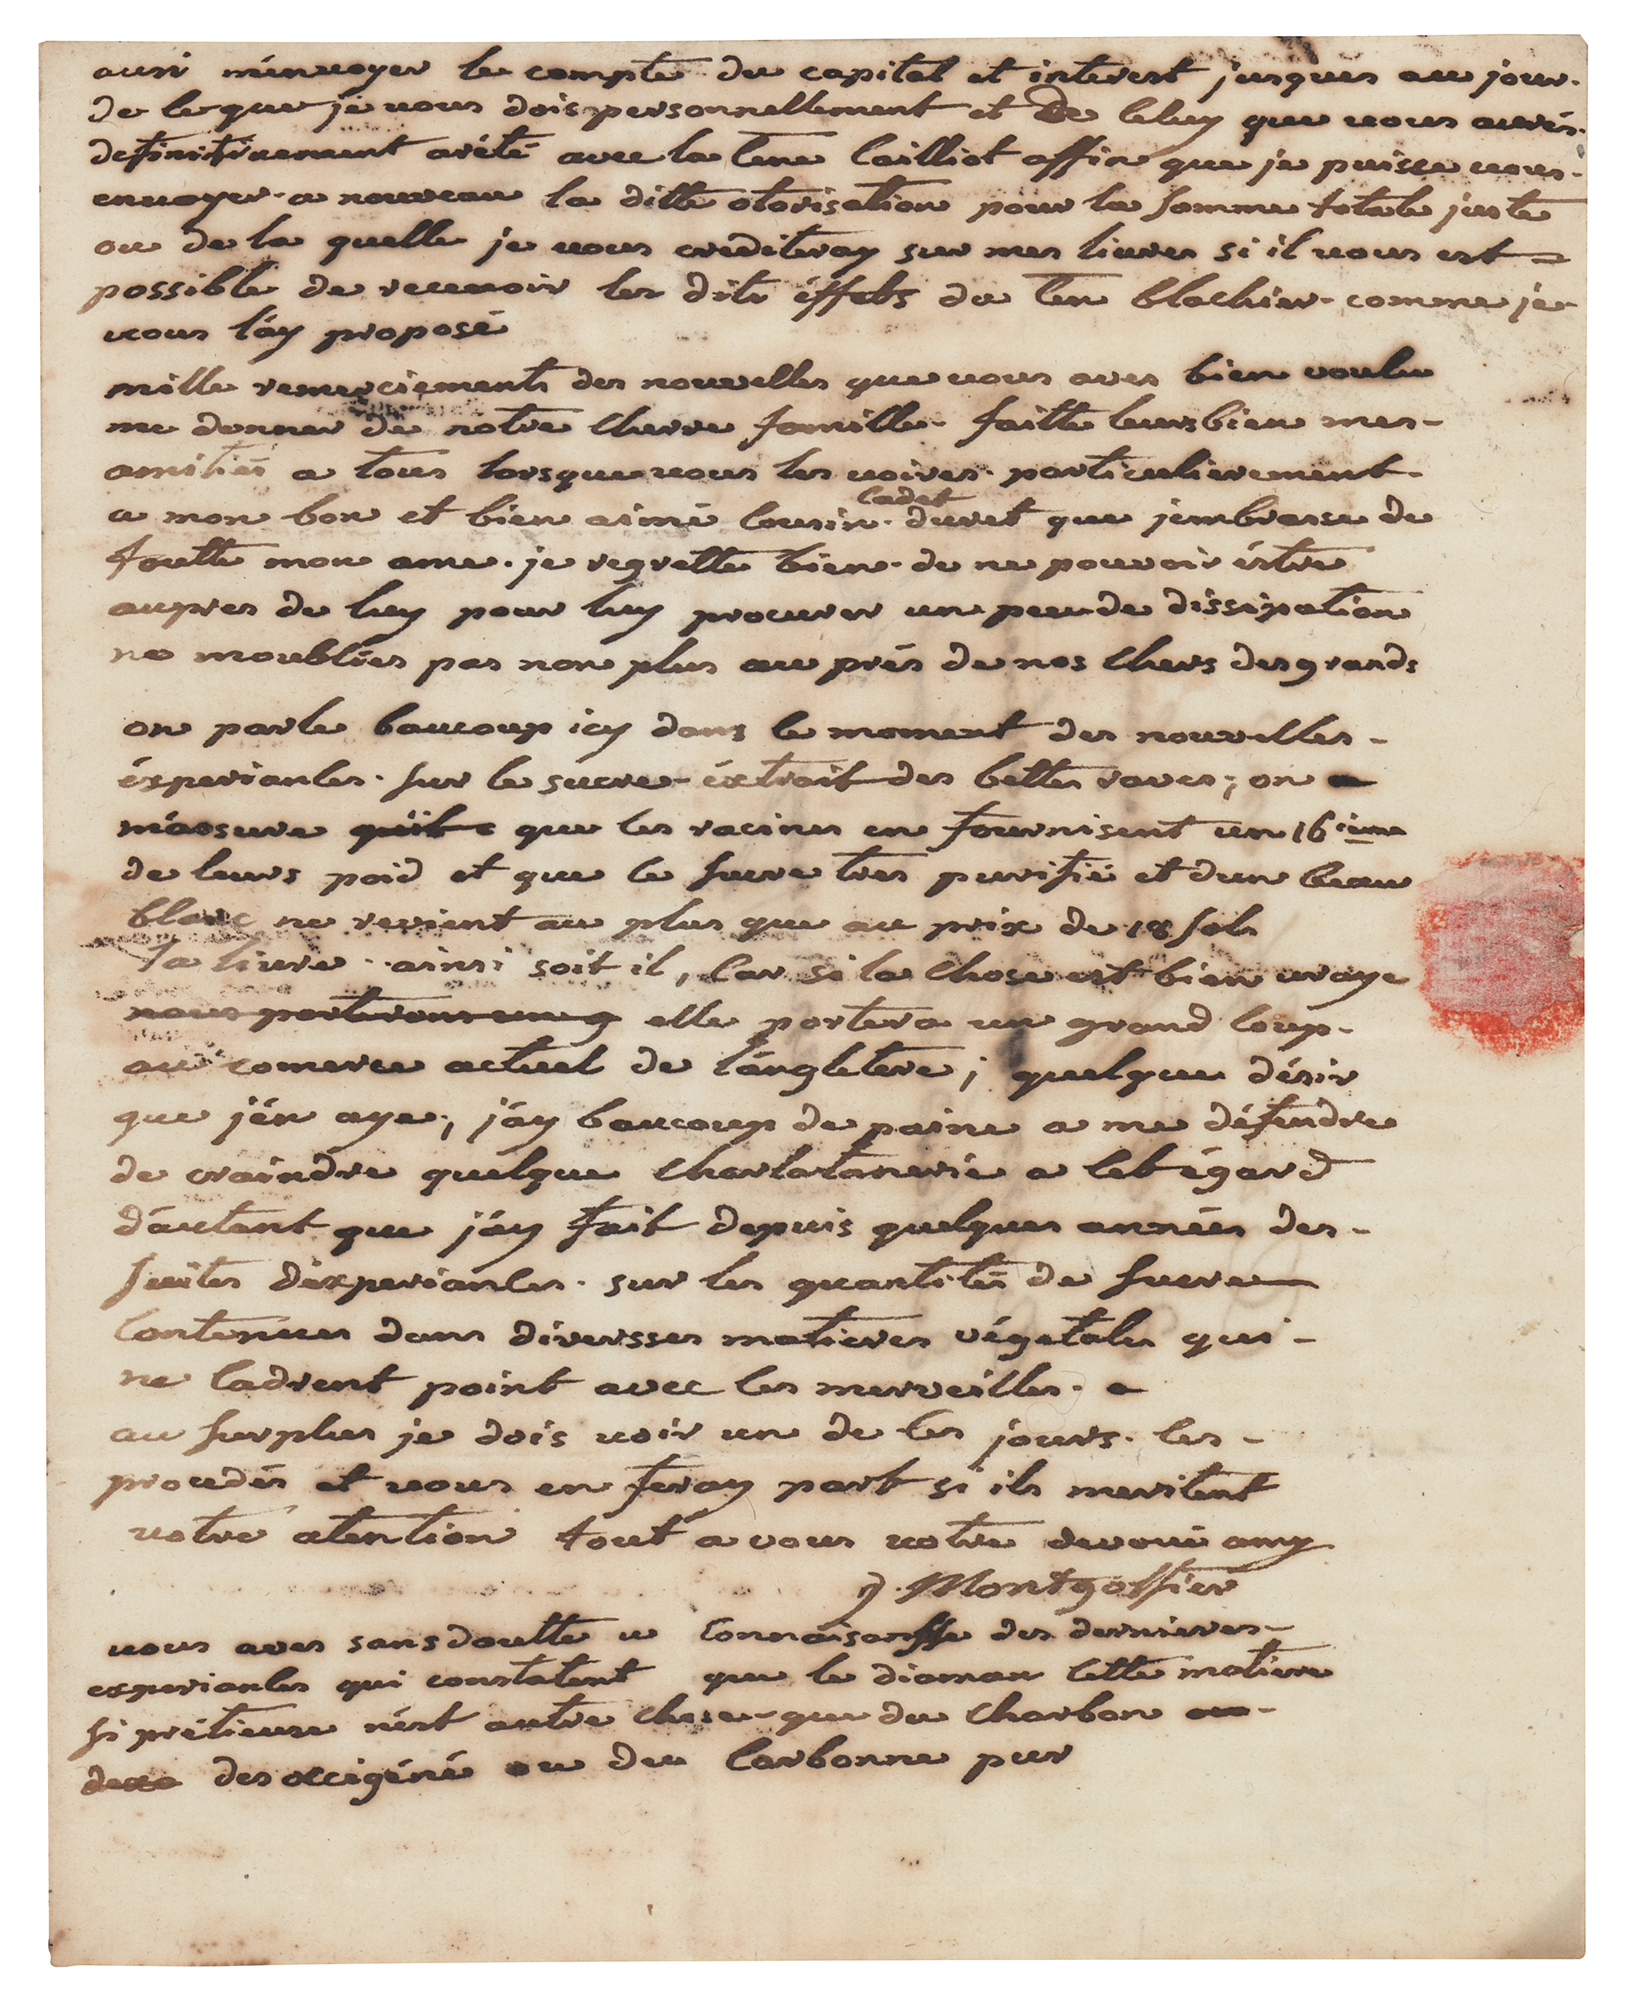 ausi m'envoyer le compte du capital et interest jusques au jour
de le que je vous dois personnellement et de celuy que vous aurés
definitivement arété avec la Cene Cailliot affin que je puisse vous
envoyer a nouveau la ditte otorisation pour la somme totale juste
ou de la quelle je vous crediteray sur mes livres si il vous est
possible de recevoir les dits éffets du Cen blachier comme je
vous l'ay proposé
mille remerciements des nouvelles que vous aves bien voulu
me donner de notre cherre famille faitte leurs bien mes
amitiés a tous lorsque vous les voires particulierement
a mon bon et bien aimé Cousin Cadet duret que jembrasse de
toutte mon ame. je regrette bien de ne pouvoir éstre
aupres de luy pour luy procurer un peu de dissipation
ne moubliés pas non plus au prés de nos chers desgrands
on parle baucoup icy dans le moment des nouvelles
éxperiances sur le sucre éxtrait des bettes raves ; on
m'assure quil que les racines en fournisent un 16ieme
de leurs poid et que le sucre tres purifié et d'un beau
blanc ne revient au plus que au prix de 18 sols
la livre ainsi soit il, Car si la chose est bien vraye
nous porterons un g elle portera un grand Coup
au comerce actuel de l'angleterre ; quelque désir
que j'én aye ; j'áy baucoup de paine a me défendre
de craindre quelque charlatanerie a cet égard
d'autant que j'áy fait depuis quelques années des
suites d'experiances sur les quantités de sucre
Contenues dans diversses matieres végetales qui
ne Cadrent point avec les merveilles.
au surplus je dois voir un de ces jours les
procedés et vous en feray part si ils meritent
votre atention tout a vous votre devoué amy
J. Montgolfier
vous aves sans doutte u Connaisansse des dernieres
experiances qui constatent que le diaman Cette matiere
si prétieuse n'ést autre chose que du Charbon
desoccigéné ou du Carbonne pur